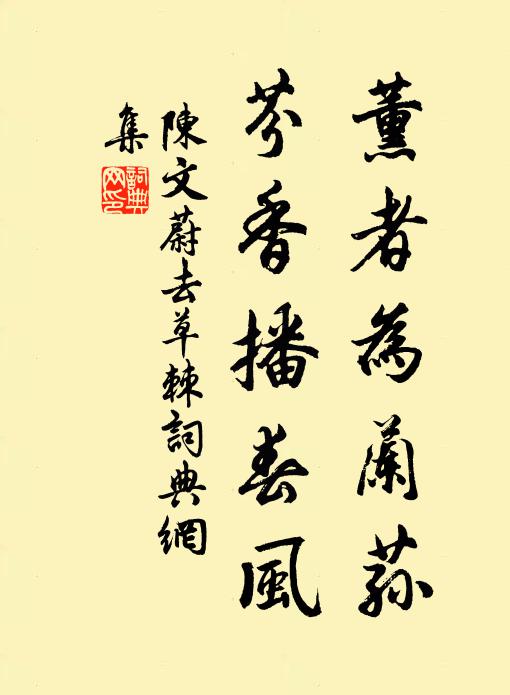 薰者為蘭蓀
芬香播春風
陳文蔚去草棘詞典網
集
詞典网印